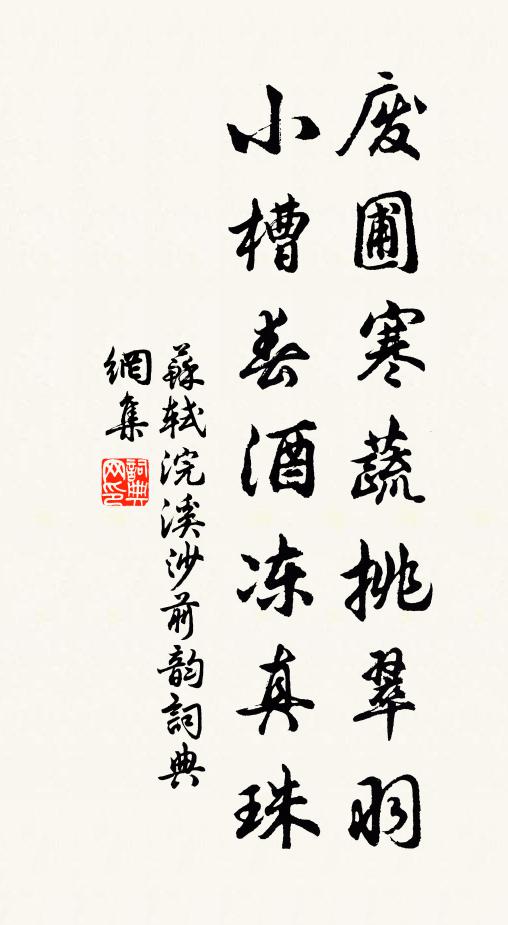 废圃寒蔬挑翠羽
小槽春酒冻真珠
蘇轼浣溪沙前韵詞典
網集
詞典
网印